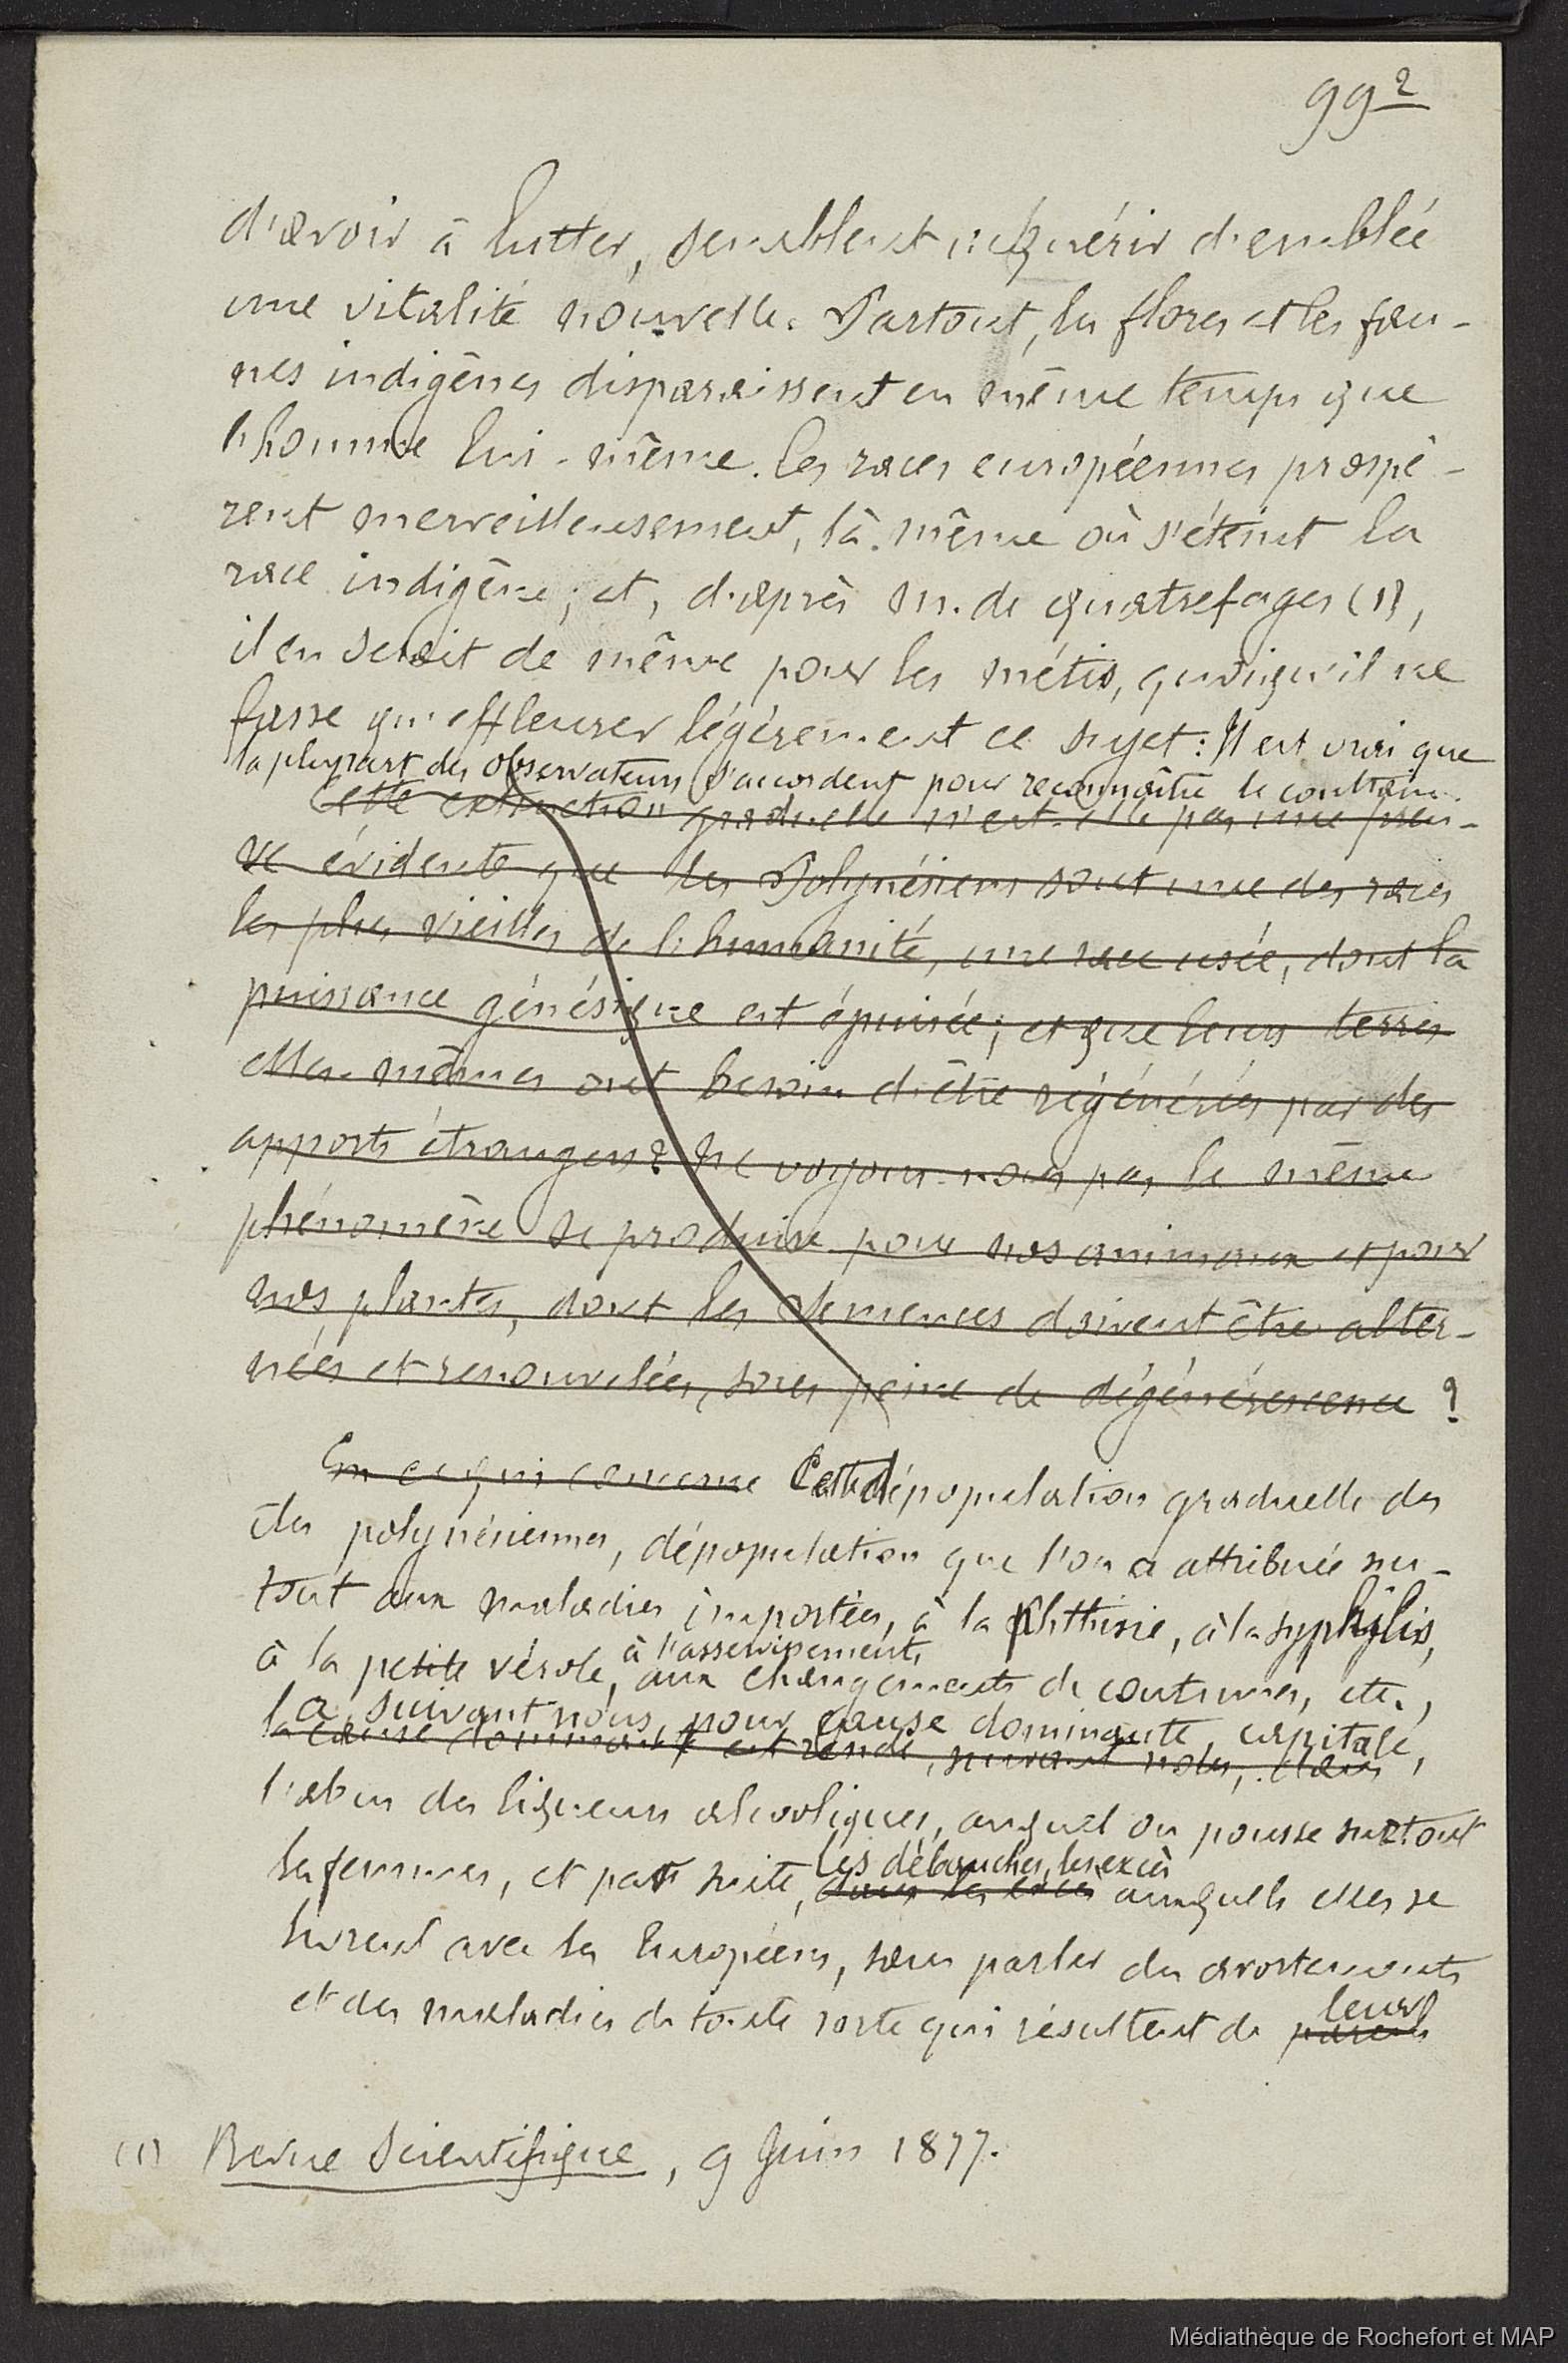 99²
d'avoir à lutter, semblent acquérir d'emblée
une vitalité nouvelle. Partout, les flores et les fau-
nes indigènes disparaissent en même temps que
l'homme lui-même. Les races européennes prospè-
rent merveilleusement, là-même où s'éteint la
race indigène; et, d'après M. de Quatrefages (1),
il en serait de même pour les métis, quoiqu'il ne
fasse qu'effleurer légèrement ce sujet: Il est vrai que
la plupart des observateurs s'accordent pour reconnaître le contraire.
Cette extinction graduelle n'est-elle pas une preu-
ve évidente que les Polynésiens sont une des races
les plus vieilles de l'humanité, une race usée, dont la
puissance génésique est épuisée; et que leurs terres
elles-mêmes ont besoin d'être régénérées par des
apports étrangers? Ne voyons-nous pas le même
phénomène se produire pour nos animaux et pour
nos plantes, dont les semences doivent être alter-
nées et renouvelées, sous peine de dégénérescence ?
En ce qui concerne Cette dépopulation graduelle des
îles polynésiennes, dépopulation que l'on a attribuée sur-
tout aux maladies importées, à la phthisie, à la syphilis,
à l'asservissement,
à la petite vérole, aux changements de coutumes, etc.,
a, suivant nous, pour cause dominante, capitale,
la cause dominante réside, suivant nous, dans
l'abus des liqueurs alcooliques, auquel on pousse surtout
les débauches, les excès
les femmes, et par suite, dans les excès auxquels elles se
livrent avec les Européens, sans parler des avortements
leurs
et des maladies de toute sorte qui résultent de pareils
(1) Revue Scientifique, 9 Juin 1877.
Médiathèque de Rochefort et MAP